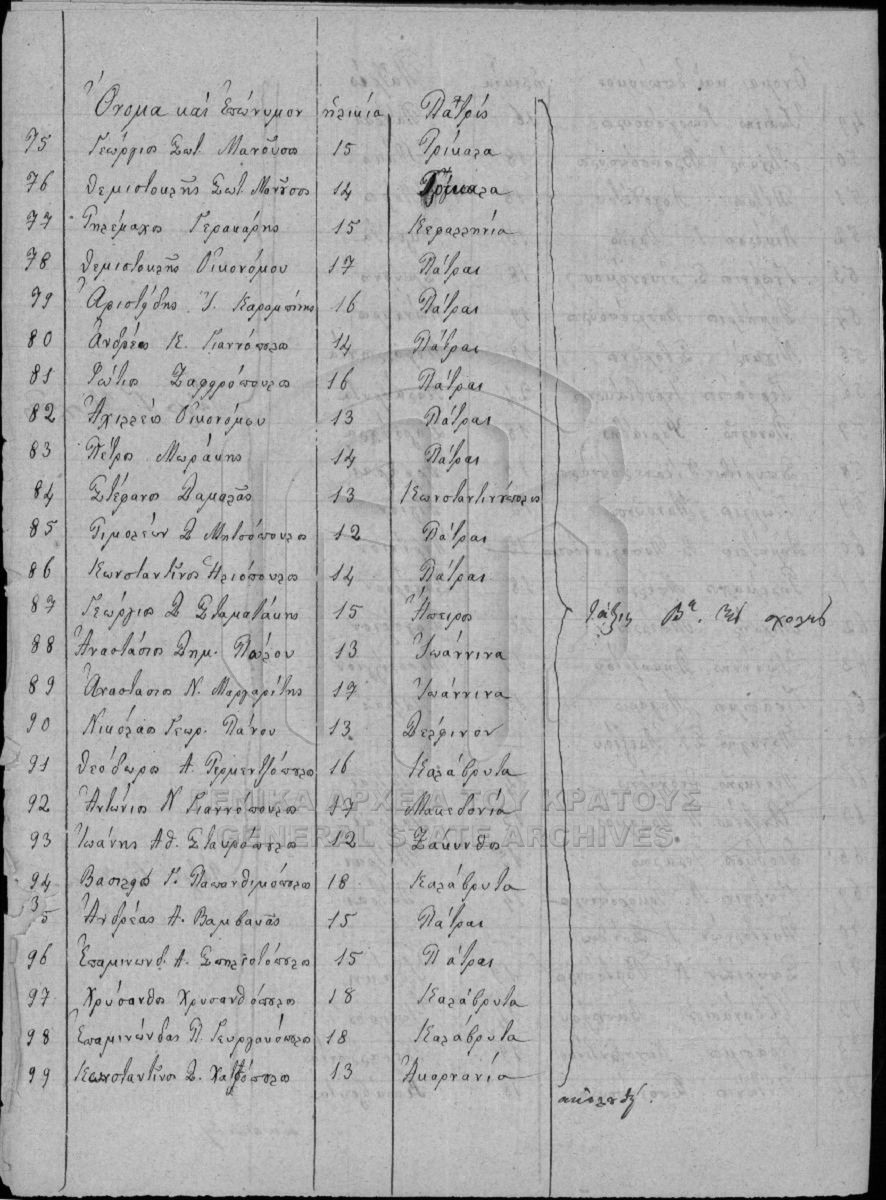 Ὄνομα καὶ Ἐπώνυμον ἡλικία Πατρίς
75 Γεώργιος Σωτ. Μανοῦσος 15 Τρίκαλα
76 Θεμιστοκλῆς Σωτ. Μανοῦσος 14 Τρίκαλα
77 Τηλέμαχος Γερακάρης 15 Κεφαλληνία
78 Θεμιστοκλῆς Οἰκονόμου 17 Πάτραι
79 Ἀριστείδης 16 Πάτραι
80 Ἀνδρέας Κ. Γιαννόπουλος 14 Πάτραι
81 Φώτιος Ζαφυρόπουλος 16 Πάτραι
82 Ἀχιλλεὺς Οἰκονόμου 13 Πάτραι
83 Πέτρος Μωράκης 14 Πάτραι
84 Στέφανος Δαμαλᾶς 13 Κωνσταντινούπολις
85 Τιμολέων Δ Μητσόπουλος 12 Πάτραι
86 Κωνσταντῖνος Ἡλιόπουλος 14 Πάτραι
87 Γεώργιος Δ Σταματάκης 15 Ἤπειρος
τάξις Βα. τῆς σχολῆς
88 Ἀναστάσιος Δημ. Παύλου 13 Ἰωάννινα
89 Ἀναστασιος Ν. Μαργαρίτης 17 Ἰωάννινα
90 Νικόλαος Γεωρ. Πάνου 13 Δέλφινον
91 Θεόδωρος Α. Τερμεντζόπουλος 16 Καλάβρυτα
92 Ἀντώνιος Ν Γιαννόπουλος 17 Μακεδονία
ΓΕΝΙΚΑ ΑΡΧΕΙΑ ΤΟΥ ΚΡΑΤΟΥΣ
93 Ἰωάνης Αθ. Σταυρόπουλος 12 Ζάκυνθος
GENERAL STATE ARCHIVES
94 Βασίλειος Γ. Παπανθιμόπουλος 18 Καλάβρυτα
95 Ἀνδρέας Α. Βαμβακᾶς 15 Πάτραι
96 Ἐπαμινωνδ. Α. Σπηλιοτόπουλος 15 Πάτραι
97 Χρύσανθος Χρυσανθόπουλος 18 Καλάβρυτα
98 Ἐπαμινώνδας Π. 18 Καλάβρυτα
99 Κωνσταντῖνος Δ. Χατζόπουλος 13 Ἀκαρνανία
ἀκολουθεῖ.